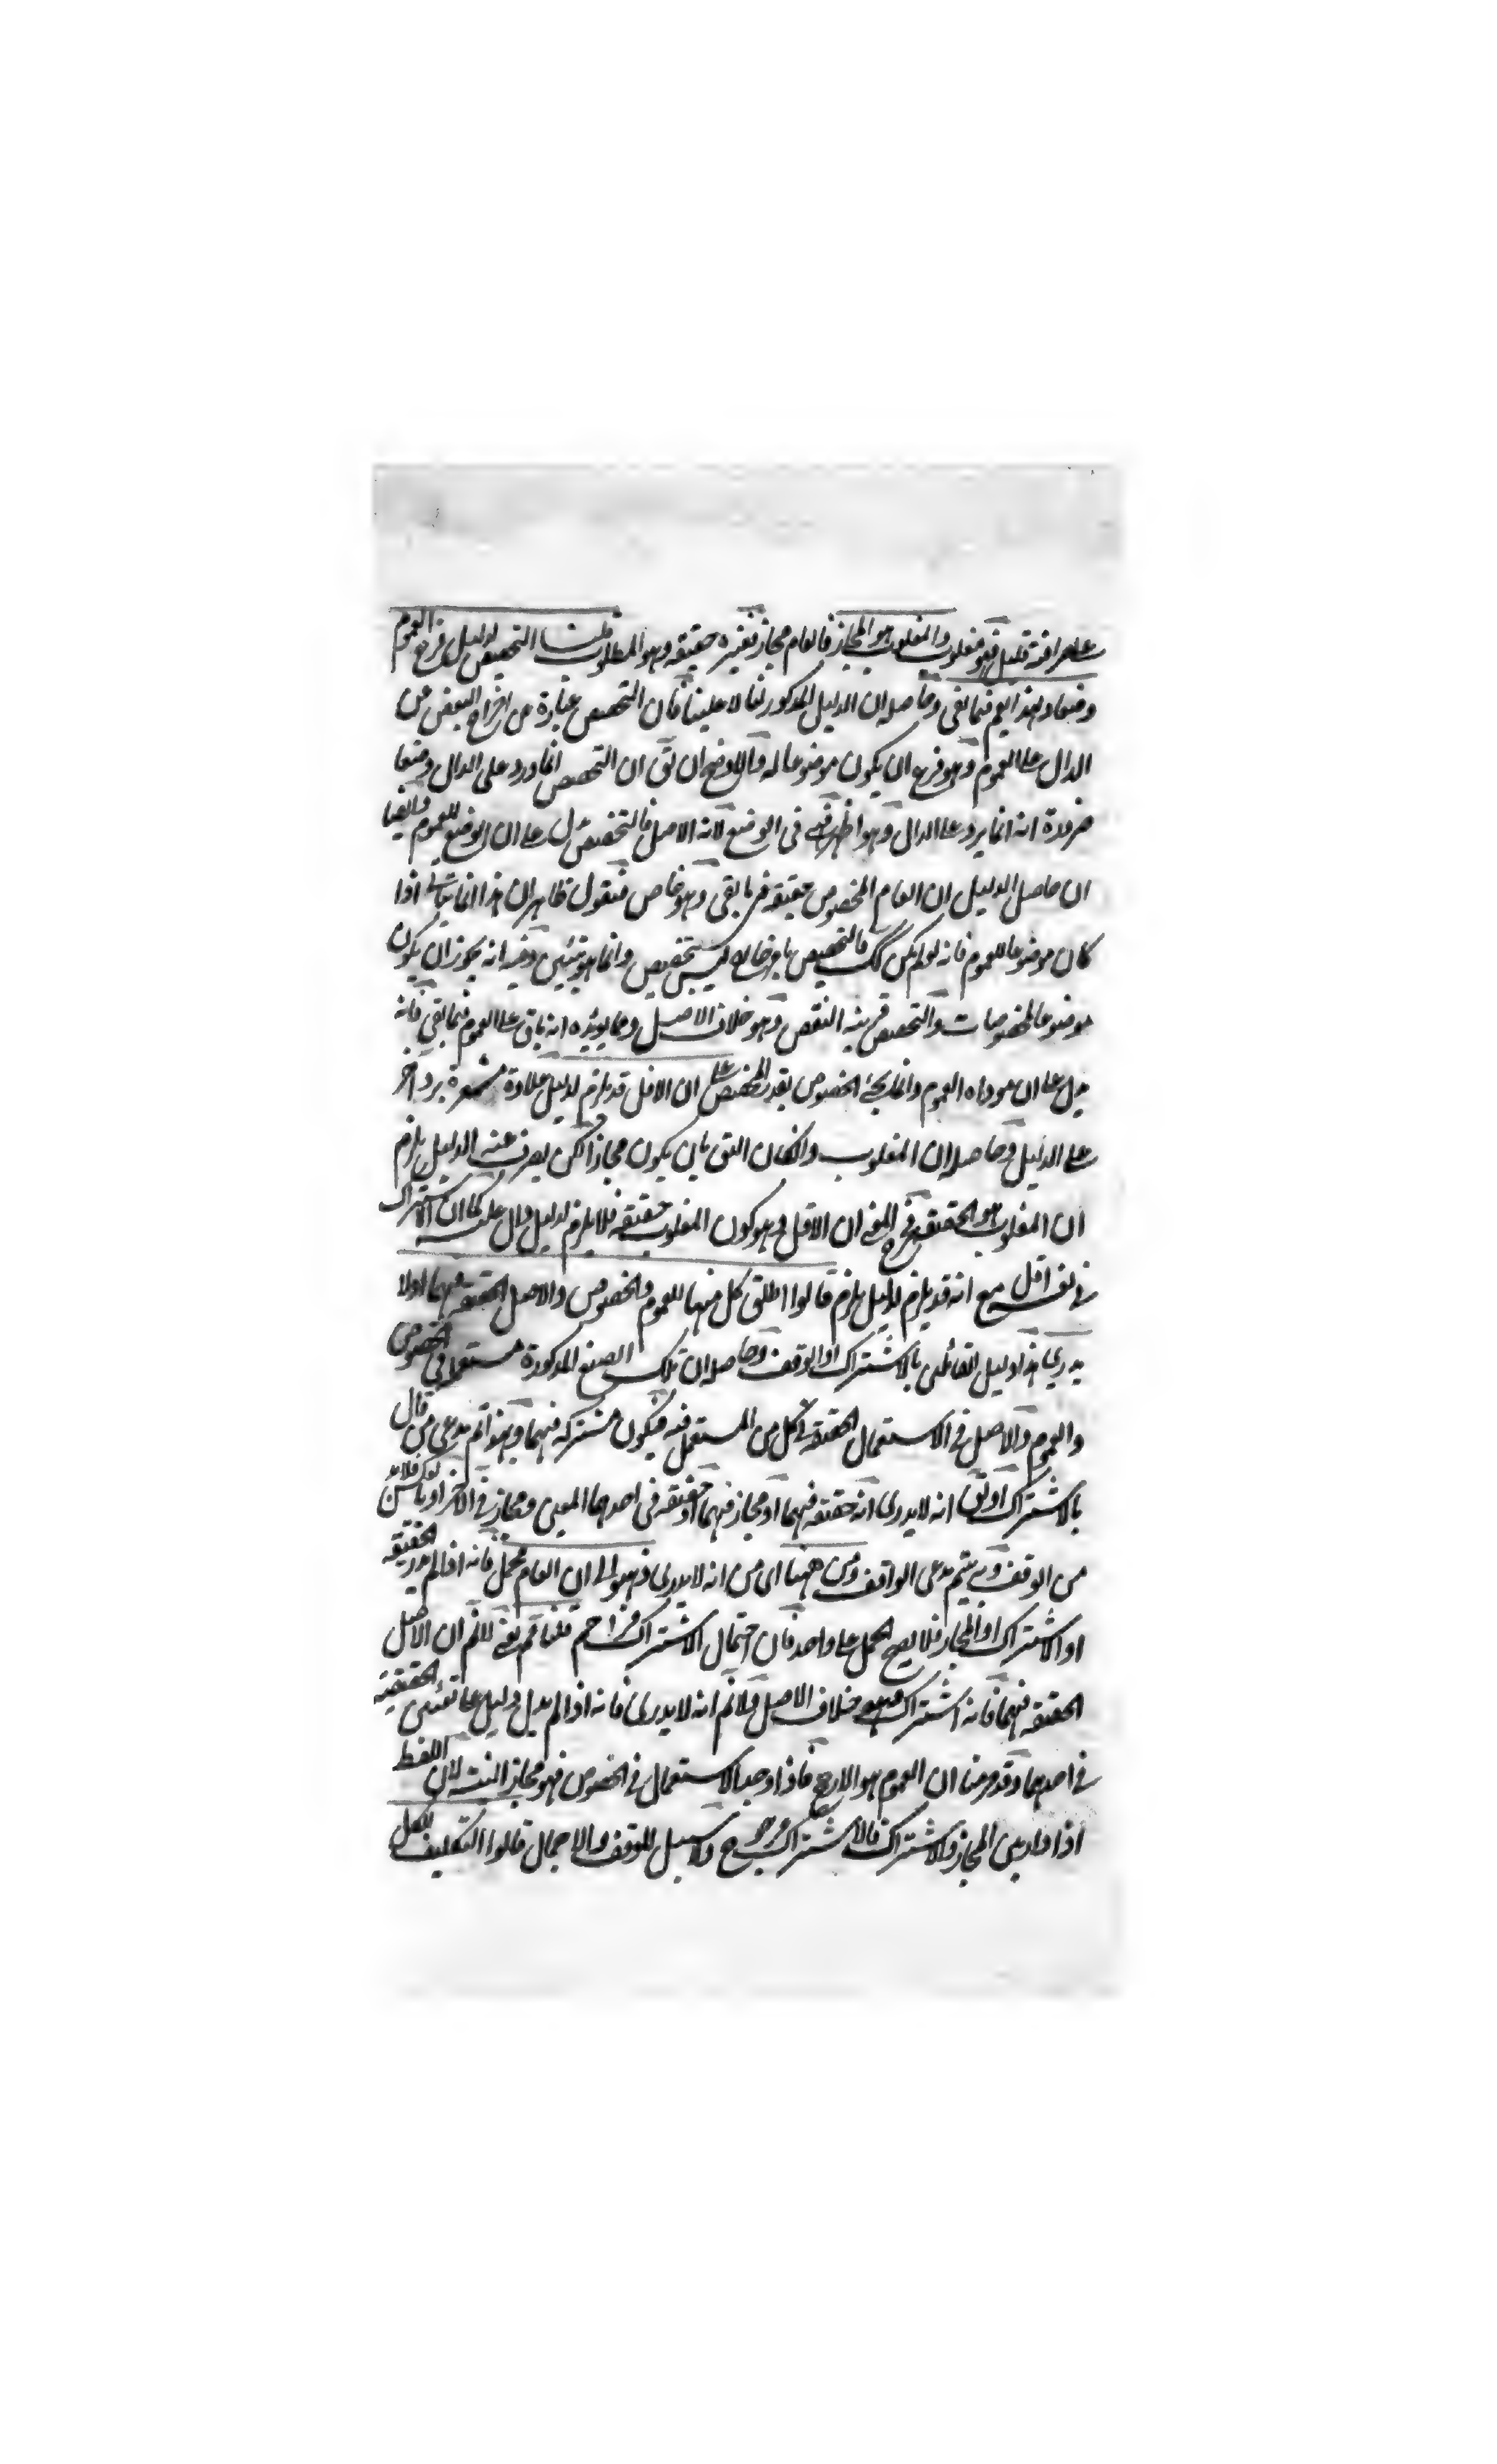 على صرافته قليل فهو مغلوب والمغلوب هو المجاز فالعام مجاز فغيره حقيقة وهو المطلوب قلنا التخصيص لدليل فرع العموم
وضعا ولهذا يعم فيما بقى وحاصله ان الدليل المذكور لنا لا علينا فان التخصيص عبارة عن اخراج البعض عن
الدال على العموم وهو فرع ان يكون موضوعا له والاوضح ان يق ان التخصيص انما ورد على الدال وضعا
ضرورة انه انما يرد على الدال وهو اظهر فى الوضع لانه الاصل فالتخصيص دل على ان الوضع للعموم وايضا
ان حاصل الدليل ان العام المخصوص حقيقة فى ما بقى وهو خاص فنقول ظاهر ان هذا انما اذا
كان موضوعا للعموم فانه لو لم يكن كك فالتخصيص ليس بتخصيص وانما هو وفيه انه يجوز ان يكون
موضوعا لخصوصات والتخصيص قرينة النقص وهو خلاف الاصل ومما يؤيده انه باق على العموم فيما بقى فانه
يدل على ان مؤداه العموم وانما يجئ الخصوص بقدر المخصص على ان الاقل قد يلزم لدليل علاوة مشعرة برد آخر
على الدليل وحاصله ان المغلوب وان كان اليق بان يكون مجازا لكن يصرف عنه الدليل يلزم
ان المغلوب هو الحقيقة ان الاقل وهو كون المغلوب حقيقة فلا يلزم لدليل دال عليه كما ان الاشتراك
فى نفسه اقل مع انه قد يلزم لدليل يلزم قالوا اطلق كل منها للعموم والخصوص والاصل الحقيقة فيهما او لا
يدرى هذا دليل القائلين بالاشتراك او الوقف وحاصله ان تلك الصيغ المذكورة مستعملة فى الخصوص
والعموم والاصل فى الاستعمال الحقيقة فى كل من المستعمل فيه فيكون مشتركة فيهما وبهذا تم مدعى من قال
بالاشتراك او يق انه لا يدرى انه حقيقة فيهما او مجاز فيهما او حقيقة فى احدهما المعين ومجاز فى الآخر او بالعكس فلا بد
من الوقف وبه يتم مدعى الواقف ومن ههنا اى من انه لا يدرى ذهبوا الى ان العام مجمل فانه اذا لم يدر الحقيقة
او الاشتراك او المجاز فلا يصح الحمل على واحد فان احتمال الاشتراك مزاحم قلنا قم يعنى لا نم ان الاصل
الحقيقة فيهما فانه اشتراك فهو خلاف الاصل ولا نم انه لا يدرى فانه اذا لم يدل دليل على تعيين الحقيقة
فى احدهما وقد مر منا ان العموم هو الارجح فاذا وجد الاستعمال فى الخصوص فهو مجاز البتة لان اللفظ
اذا دار بين المجاز والاشتراك فالاشتراك مرجوح ولا سبيل للوقف والاجمال قالوا التكليف للكل